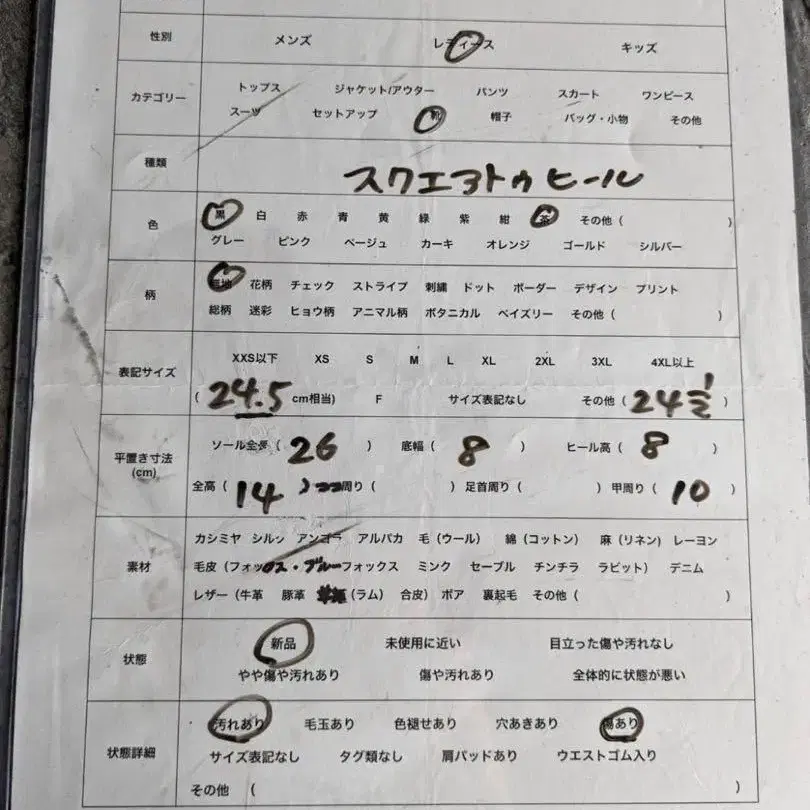 性別 メンズ レディース キッズ
カテゴリー トップス ジャケット/アウター パンツ スカート ワンピース
スーツ セットアップ 靴 帽子 バッグ・小物 その他
種類 スクエアトゥヒール
色 黒 白 赤 青 黄 緑 紫 紺 茶 その他 ( )
グレー ピンク ベージュ カーキ オレンジ ゴールド シルバー
柄 無地 花柄 チェック ストライプ 刺繍 ドット ボーダー デザイン プリント
総柄 迷彩 ヒョウ柄 アニマル柄 ボタニカル ペイズリー その他 ( )
表記サイズ XXS以下 XS S M L XL 2XL 3XL 4XL以上
( 24.5 cm相当) F サイズ表記なし その他 ( 24 1/2 )
平置き寸法 (cm) ソール全長 ( 26 ) 底幅 ( 8 ) ヒール高 ( 8 )
全高 ( 14 ) 周り ( ) 足首周り ( ) 甲周り ( 10 )
素材 カシミヤ シルク アンゴラ アルパカ 毛 (ウール) 綿 (コットン) 麻 (リネン) レーヨン
毛皮 (フォックス・ブルーフォックス ミンク セーブル チンチラ ラビット) デニム
レザー (牛革 豚革 (ラム) 合皮) ボア 裏起毛 その他 ( )
状態 新品 未使用に近い 目立った傷や汚れなし
やや傷や汚れあり 傷や汚れあり 全体的に状態が悪い
状態詳細 汚れあり 毛玉あり 色褪せあり 穴あきあり 傷あり
サイズ表記なし タグ類なし 肩パッドあり ウエストゴム入り
その他 (